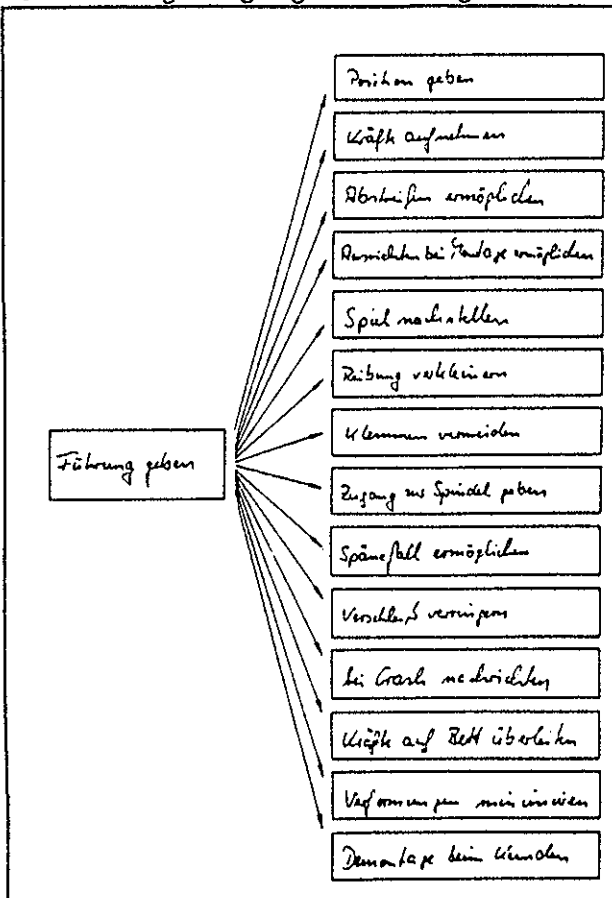 Position geben
Kräfte aufnehmen
Abstreifen ermöglichen
Ausrichten bei Montage ermöglichen
Spiel nachstellen
Reibung verkleinern
Klemmen vermeiden
Führung geben
Zugang zur Spindel geben
Spänefall ermöglichen
Verschleiß verringern
bei Crash nachrichten
Kräfte auf Bett überleiten
Verformungen minimieren
Demontage beim Kunden